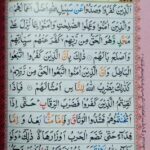 اَلَّذِيْنَ كَفَرُوْا وَصَدُّوْا عَنْ سَبِيْلِ اللّٰهِ اَضَلَّ اَعْمَالَهُمْ
وَالَّذِيْنَ اٰمَنُوْا وَعَمِلُوا الصّٰلِحٰتِ وَاٰمَنُوْا بِمَا نُزِّلَ عَلٰى
مُحَمَّدٍ وَّهُوَ الْحَقُّ مِنْ رَّبِّهِمْ كَفَّرَ عَنْهُمْ سَيِّاٰتِهِمْ
وَاَصْلَحَ بَالَهُمْ ذٰلِكَ بِاَنَّ الَّذِيْنَ كَفَرُوا اتَّبَعُوا
الْبَاطِلَ وَاَنَّ الَّذِيْنَ اٰمَنُوا اتَّبَعُوا الْحَقَّ مِنْ رَّبِّهِمْ
كَذٰلِكَ يَضْرِبُ اللّٰهُ لِلنَّاسِ اَمْثَالَهُمْ فَاِذَا لَقِيْتُمُ
الَّذِيْنَ كَفَرُوْا فَضَرْبَ الرِّقَابِ حَتّٰى اِذَا
اَثْخَنْتُمُوْهُمْ فَشُدُّوا الْوَثَاقَ فَاِمَّا مَنًّا بَعْدُ وَاِمَّا
فِدَآءً حَتّٰى تَضَعَ الْحَرْبُ اَوْزَارَهَا ذٰلِكَ وَلَوْ